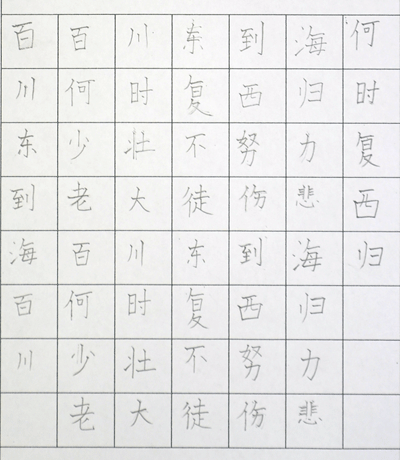 百百川东到海何
川何时复西归时
东少壮不努力复
到老大徒伤悲西
海百川东到海归
百何时复西归
川少壮不努力
老大徒伤悲